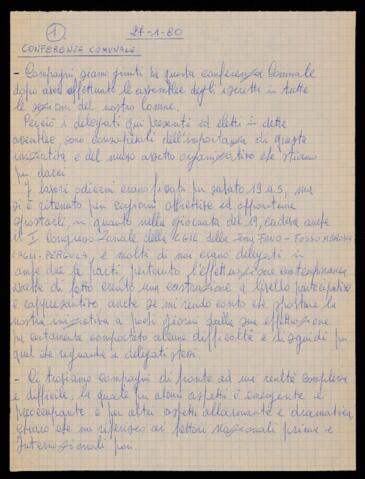 1
27-1-80
CONFERENZA COMUNALE
- Compagni siamo giunti a questa conferenza Comunale
dopo aver effettuato le assemblee degli iscritti in tutte
le sezioni del nostro Comune.
Perciò i delegati qui presenti ed eletti in dette
assemblee, sono consapevoli dell'importanza di questa
iniziativa e del nuovo assetto organizzativo che stiamo
per darci
I lavori odierni erano fissati per sabato 19 u.s, ma
si è ritenuto per ragioni obiettive ed opportune
spostarli, in quanto nella giornata del 19, cadeva anche
il I° Congresso Zonale della CGIL della zona FANO - FOSSOMBRONE
CAGLI - PERGOLA, e molti di noi erano delegati in
ambedue le parti pertanto l'effettuazione contemporanea
avrebbe di fatto creato una castrazione a livello partecipativo
e rappresentativo anche se mi rendo conto che spostare la
nostra iniziativa a pochi giorni dalla sua effettuazione
ha certamente comportato alcune difficoltà e disguidi per
quel che riguarda i delegati stessi.
- Ci troviamo compagni di fronte ad una realtà complessa
e difficile, la quale per alcuni aspetti è emergente e
preoccupante e per altri aspetti allarmante e drammatica
chiaro che mi riferisco ai settori Nazionali prima e
Internazionali poi.